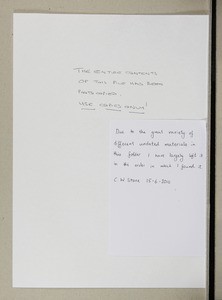 THE ENTIRE CONTENTS
OF THIS FILE HAS BEEN
PHOTOCOPIED.
USE COPIES ONLY!
Due to the great variety of
different unrelated materials in
this folder I have largely left it
in the order in which I found it
C. W 15-6-2010